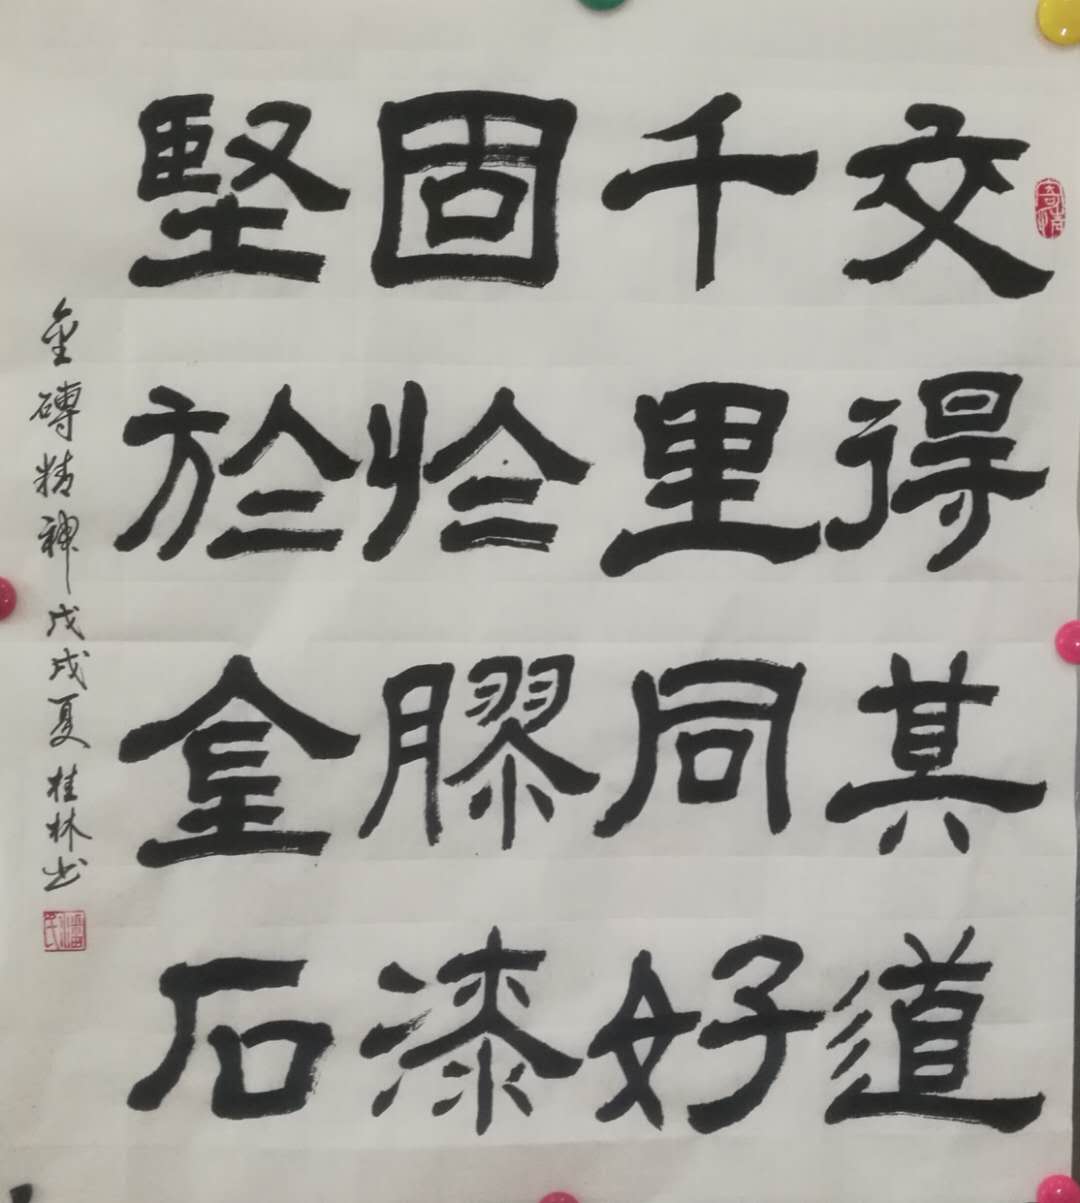 交得其道
千里同好
固於膠漆
堅於金石
金磚精神戊戌夏桂林书
潘氏